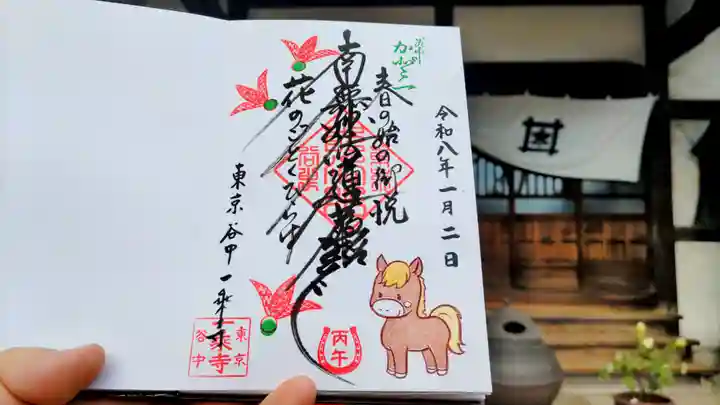 令和八年一月二日
春の始の御悦
南無妙法蓮華経
花のごとくひらけ
東京谷中一乗寺
丙午
東京
一乗寺
谷中